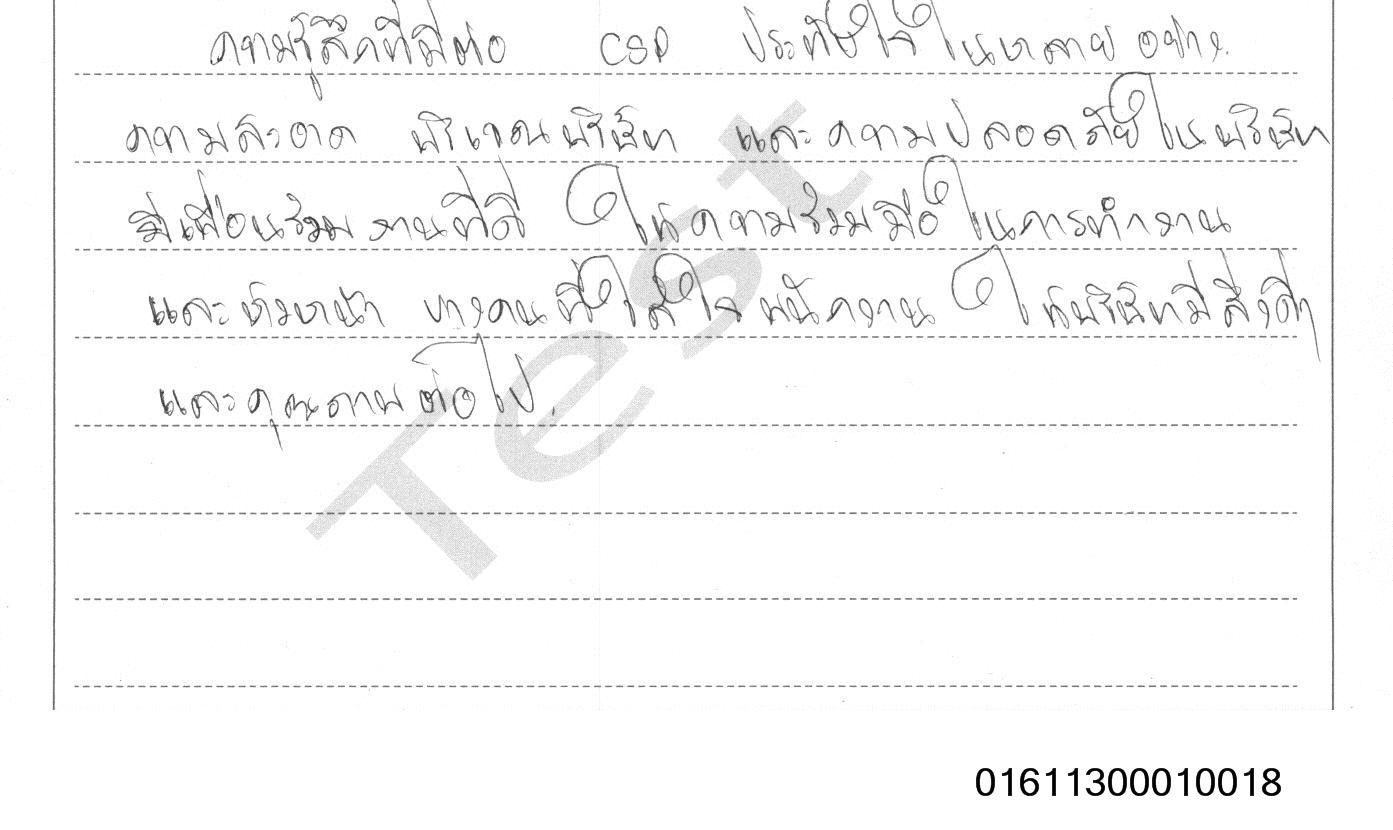 ความรู้สึกที่มีต่อ CSP ประทับใจในหลายอย่าง.
ความสะอาด บริเวณบริษัท และความปลอดภัยในบริษัท
มีเพื่อนร่วมงานที่ดี ให้ความร่วมมือในการทำงาน
และหัวหน้า บางคนที่ใส่ใจพนักงาน ให้บริษัทมีสิ่งดีๆ
และคุณภาพต่อไป.
Test
01611300010018